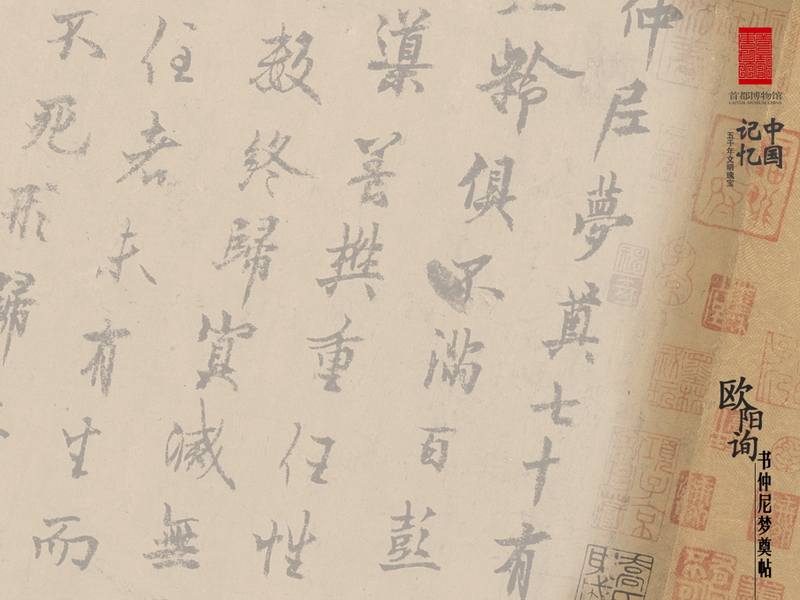 首都博物馆
CAPITAL MUSEUM, CHINA
中国
记忆
五千年文明瑰宝
欧阳询
书仲尼梦奠帖
仲尼夢奠七十有
齡俱不滿百彭
渠善攝重任性
數終歸冥滅無
住者未有生而
不死形歸